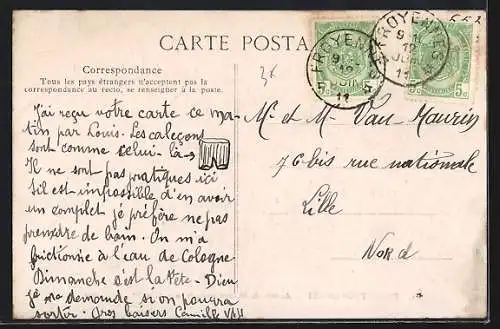 CARTE POSTA
Correspondance
Tous les pays étrangers n'acceptent pas la
correspondance au recto, se renseigner à la poste.
J'ai reçu votre carte ce ma-
tin par Louis. Les caleçons
sont comme celui-là →
Il ne sont pas pratiques ici
s'il est impossible d'en avoir
un complet je préfère ne pas
prendre de bain. On m'a
frictionnée à l'eau de Cologne
Dimanche c'est la fête. Dieu
je me demande si on pourra
sortir. Gros baisers Camille
3€
FROYENNES
9
11
5c 5c
FROYENNES
12
11
5c 5c
M. et M. Van-Maurin
76 bis rue nationale
Lille
Nord